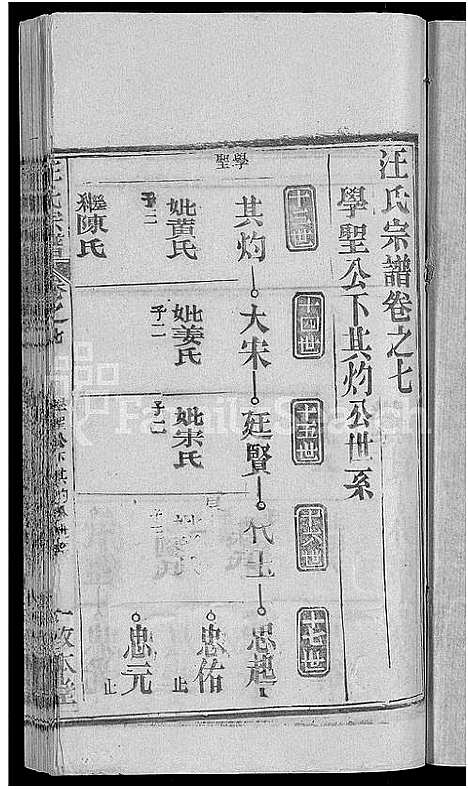 汪氏宗譜卷之七
學聖公下其灼公世系
十三世
十四世
十五世
十六世
十七世
學聖
其灼
大宋
廷賢
代
忠
妣黃氏
子三
妣姜氏
子二
妣宋氏
子二
忠佑
止
繼陳氏
忠元
止
汪氏宗譜
卷之七
學聖公下其灼
一敦本堂
FamilySearch